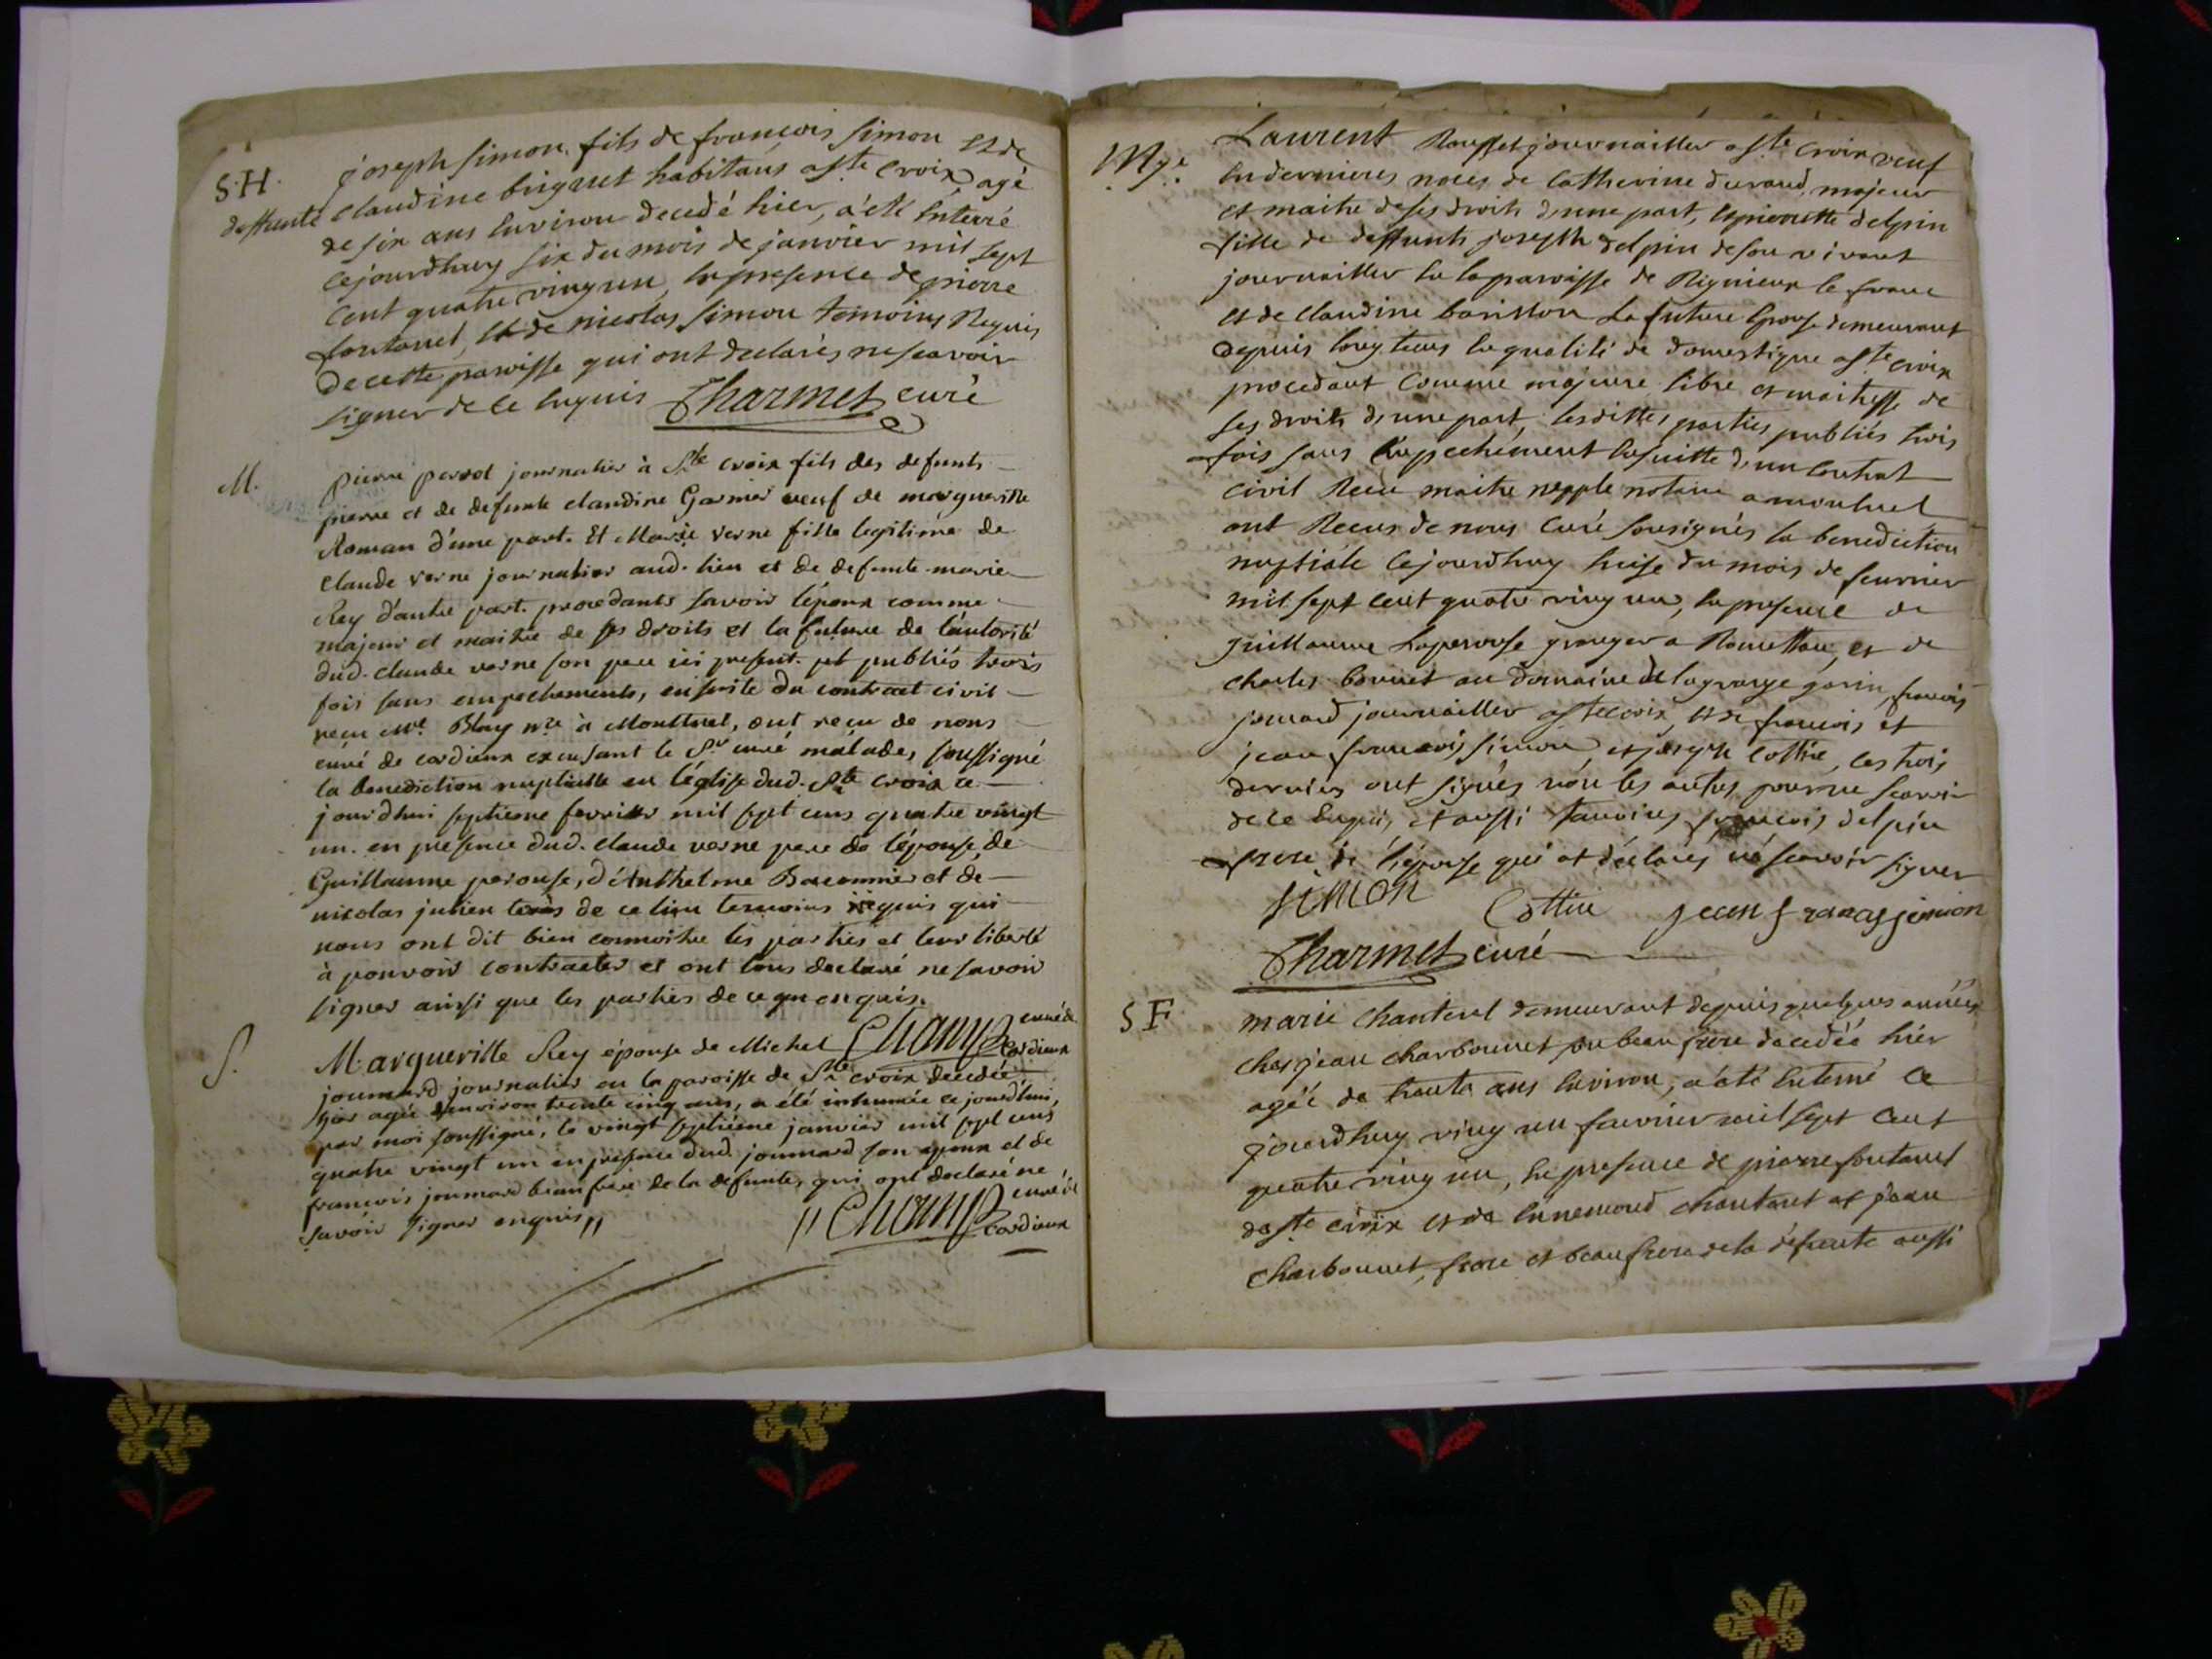 S.H. joseph simon fils de francois simon et de
deffunte claudine brigant habitans a ste croix agé
de six ans environ decedé hier, a été enterré
cejourdhuy six du mois de janvier mil sept
cent quatre ving un, en presence de pierre
fontanel, et de nicolas simon temoins Requis
de cette paroisse qui ont declarés ne scavoir
signer de ce enquis Charmet curé
M. pierre perrod journalier à Ste croix fils des defunts
pierre et de defunte claudine Garnier veuf de margueritte
Roman d'une part. Et Marie verne fille legitime de
claude verne journalier aud. lieu et de defunte marie
Rey d'autre part. procedants savoir l'epoux comme
majeur et maitre de ses droits et la future de l'autorité
dud. claude verne son pere ici present. et publiés trois
fois sans empechements, ensuite du contract civil
recu Me. Blay nre à Montluel, ont recu de nous
curé de cordieux excusant le Sr curé malade, soussigné
la benediction nuptialle en l'église dud. Ste croix ce
jourdhui septieme fevrier mil sept cens quatre vingt
un. en presence dud. claude verne pere de l'épouse, de
Guillaume perouse, d'Anthelme Baconnier et de
nicolas julien de ce lieu temoins requis qui
nous ont dit bien connoitre les parties et leur liberté
à pouvoir contracter et ont tous declaré ne savoir
signer ainsi que les parties de ce que enquis.
Champ curé de
cordieux
S. Margueritte Rey épouse de Michel
joumard journalier en la paroisse de Ste croix decedée
hier agée d'environ trente cinq ans, a été inhumée ce jourdhui,
par moi soussigné, le vingt septiéme janvier mil sept cens
quatre vingt un en presence dud. joumard son epoux et de
francois joumard beaufrere de la defunte, qui ont declaré ne
savoir signer enquis //
// Champ curé de
cordieux
Mge. Laurent Rousset journailler a ste croix veuf
en dernieres noces de catherine durand, majeur
et maitre de ses droits d'une part, et pierrette delpin
fille de deffunts joseph delpin de son vivant
journailler en la paroisse de Rignieux le franc
et de claudine La future Epouse demeurant
depuis long tems en qualité de domestique a ste croix
procedant comme majeure libre et maitresse de
ses droits d'une part, lesdittes parties publiés trois
fois sans empechement ensuitte d'un contrat
civil Recu maitre nepple notaire a montluel
ont Recus de nous curé sousignés la benediction
nuptiale cejourdhuy huise du mois de feuvrier
mil sept cent quatre ving un, en presence de
guillaume Laperouse granger a Romettan, et de
charles bonnet au domaine de la grange garin, francois
joumard journailler a ste croix, et de francois et
jean francois simon, et joseph cottin, ces trois
derniers ont signés non les autres pour ne scavoir
de ce Enquis, et aussi francois delpin
frere de l'épouse qui et declarés ne scavoir signer
simon Cottin jean francoy simon
Charmet curé
S F marie chanterel demeurant depuis quelques années
ches jean charbonnet son beau frere decedéé hier
agéé de trente ans environ, a été enterré ce
jourdhuy ving un feuvrier mil sept cent
quatre ving un, en presence de pierre fontanel
de ste croix et de ennemond chanterel et jean
charbonnet, frere et beau frere de la defunte aussi